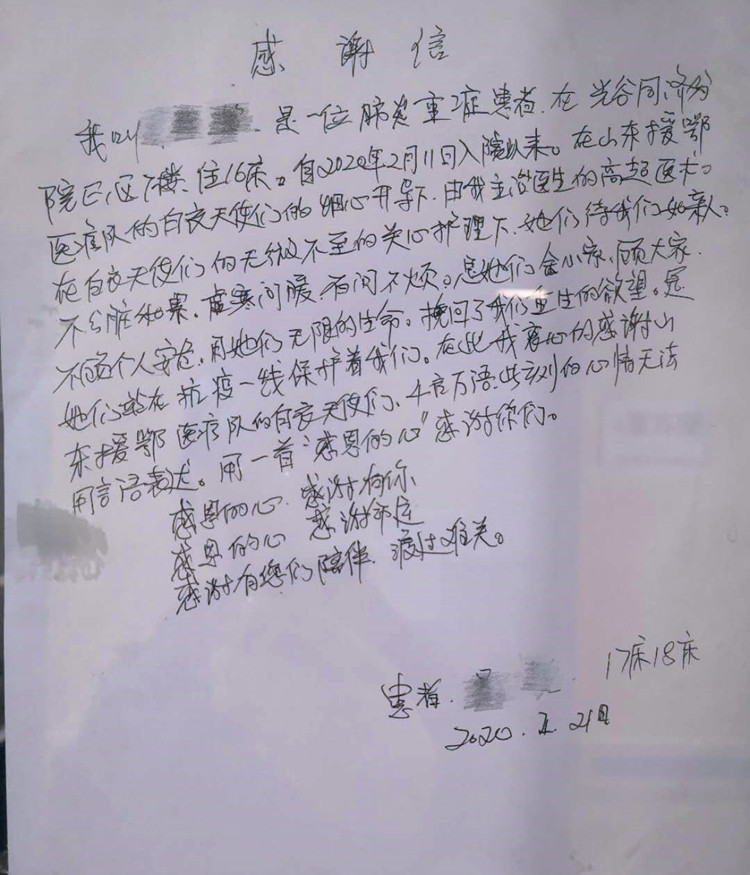 感谢信
我叫 是一位肺炎重症患者.在光谷同济分
院E区7楼.住16床。自2020年2月11日入院以来。在山东援鄂
医疗队的白衣天使们的细心开导下.由我主治医生的高超医术。
在白衣天使们的无微不至的关心护理下.她们待我们如亲人.
不分脏和累.虚寒问暖.有问不烦。是她们舍小家.顾大家.
不顾个人安危.用她们无限的生命.挽回了我们重生的欲望。是
她们站在抗疫一线保护着我们。在此我衷心的感谢山
东援鄂医疗队的白衣天使们.千言万语.此刻的心情无法
用言语表达。用一首"感恩的心"感谢你们。
感恩的心.感谢有你
感恩的心 感谢命运
感谢有您们陪伴.渡过难关。
患者. 17床18床
2020.2.21日